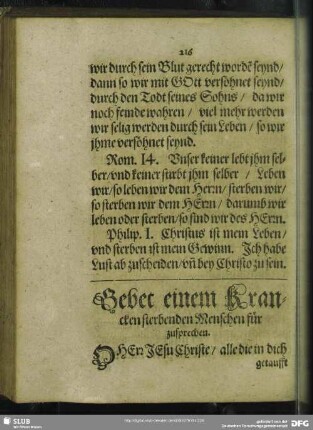 216
wir durch sein Blut gerecht wordẽ seynd/
dann so wir mit GOtt versöhnet seynd/
durch den Todt seines Sohns / da wir
noch feinde wahren / viel mehr werden
wir selig werden durch sein Leben / so wir
jhme versöhnet seynd.
Rom. 14. Unser keiner lebt jhm sel-
ber/und keiner stirbt jhm selber / Leben
wir/ so leben wir dem Herrn/ sterben wir/
so sterben wir dem HErrn / darumb wir
leben oder sterben/ so sind wir des HErrn.
Philip. 1. Christus ist mein Leben/
und sterben ist mein Gewinn. Ich habe
Lust ab zuscheiden/ uñ bey Christo zu sein.
Gebet einem Kran-
cken sterbenden Menschen für
zusprechen.
O HErr JEsu Christe/ alle die in dich
getaufft
SLUB
DFG